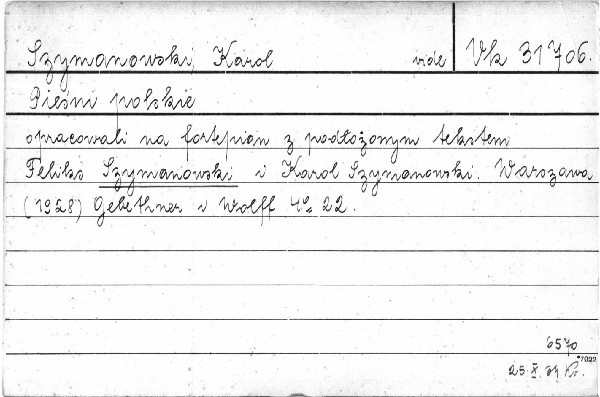 Szymanowski, Karol vide Vk 31706.
Pieśni polskie
opracowali na fortepian z podłożonym tekstem
Feliks Szymanowski i Karol Szymanowski. Warszawa
(1928) Gebethner i Wolff 4º 22.
6570
7022
25. X. 34 Kr.